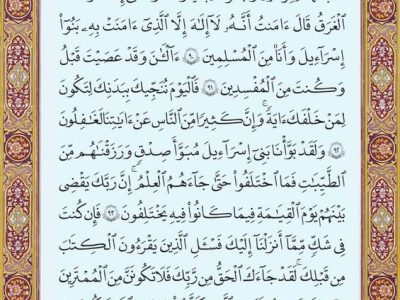 ٱلْغَرَقُ قَالَ ءَامَنتُ أَنَّهُۥ لَآ إِلَٰهَ إِلَّا ٱلَّذِىٓ ءَامَنَتْ بِهِۦ بَنُوٓا۟
إِسْرَٰٓءِيلَ وَأَنَا۠ مِنَ ٱلْمُسْلِمِينَ ٩٠ ءَآلْـَٰٔنَ وَقَدْ عَصَيْتَ قَبْلُ
وَكُنتَ مِنَ ٱلْمُفْسِدِينَ ٩١ فَٱلْيَوْمَ نُنَجِّيكَ بِبَدَنِكَ لِتَكُونَ
لِمَنْ خَلْفَكَ ءَايَةً ۚ وَإِنَّ كَثِيرًا مِّنَ ٱلنَّاسِ عَنْ ءَايَٰتِنَا لَغَٰفِلُونَ
٩٢ وَلَقَدْ بَوَّأْنَا بَنِىٓ إِسْرَٰٓءِيلَ مُبَوَّأَ صِدْقٍ وَرَزَقْنَٰهُم مِّنَ
ٱلطَّيِّبَٰتِ فَمَا ٱخْتَلَفُوا۟ حَتَّىٰ جَآءَهُمُ ٱلْعِلْمُ ۚ إِنَّ رَبَّكَ يَقْضِى
بَيْنَهُمْ يَوْمَ ٱلْقِيَٰمَةِ فِيمَا كَانُوا۟ فِيهِ يَخْتَلِفُونَ ٩٣ فَإِن كُنتَ
فِى شَكٍّ مِّمَّآ أَنزَلْنَآ إِلَيْكَ فَسْـَٔلِ ٱلَّذِينَ يَقْرَءُونَ ٱلْكِتَٰبَ
مِن قَبْلِكَ ۚ لَقَدْ جَآءَكَ ٱلْحَقُّ مِن رَّبِّكَ فَلَا تَكُونَنَّ مِنَ ٱلْمُمْتَرِينَ